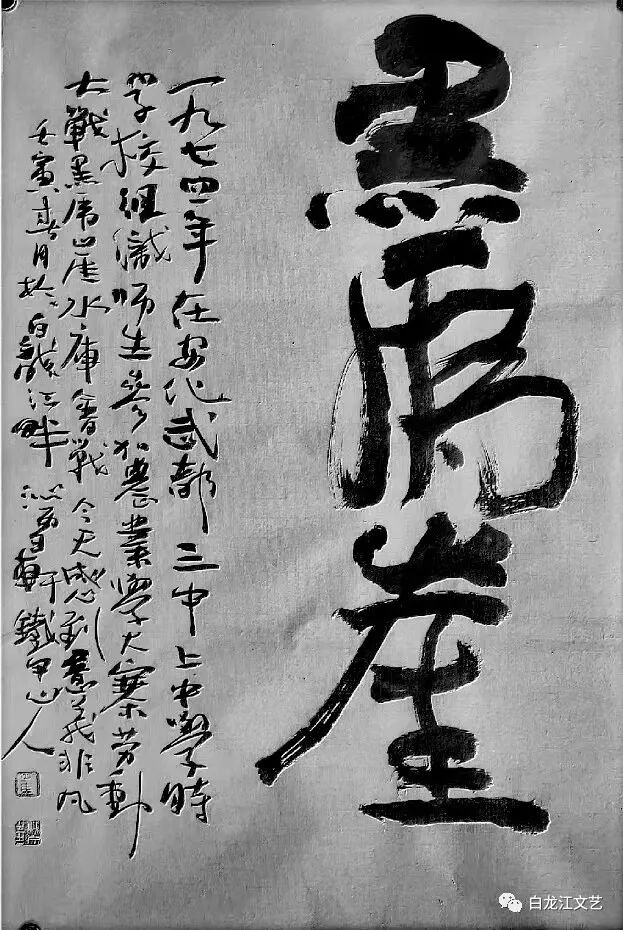 黑虎崖
一九七四年在安化武都三中上中學時
学校组織师生参加農業學大寨劳動
大戰黑虎崖水庫會战今天感到意義非凡
壬寅春月於白龍江畔沁雪軒鐵甲山人
白龙江文艺